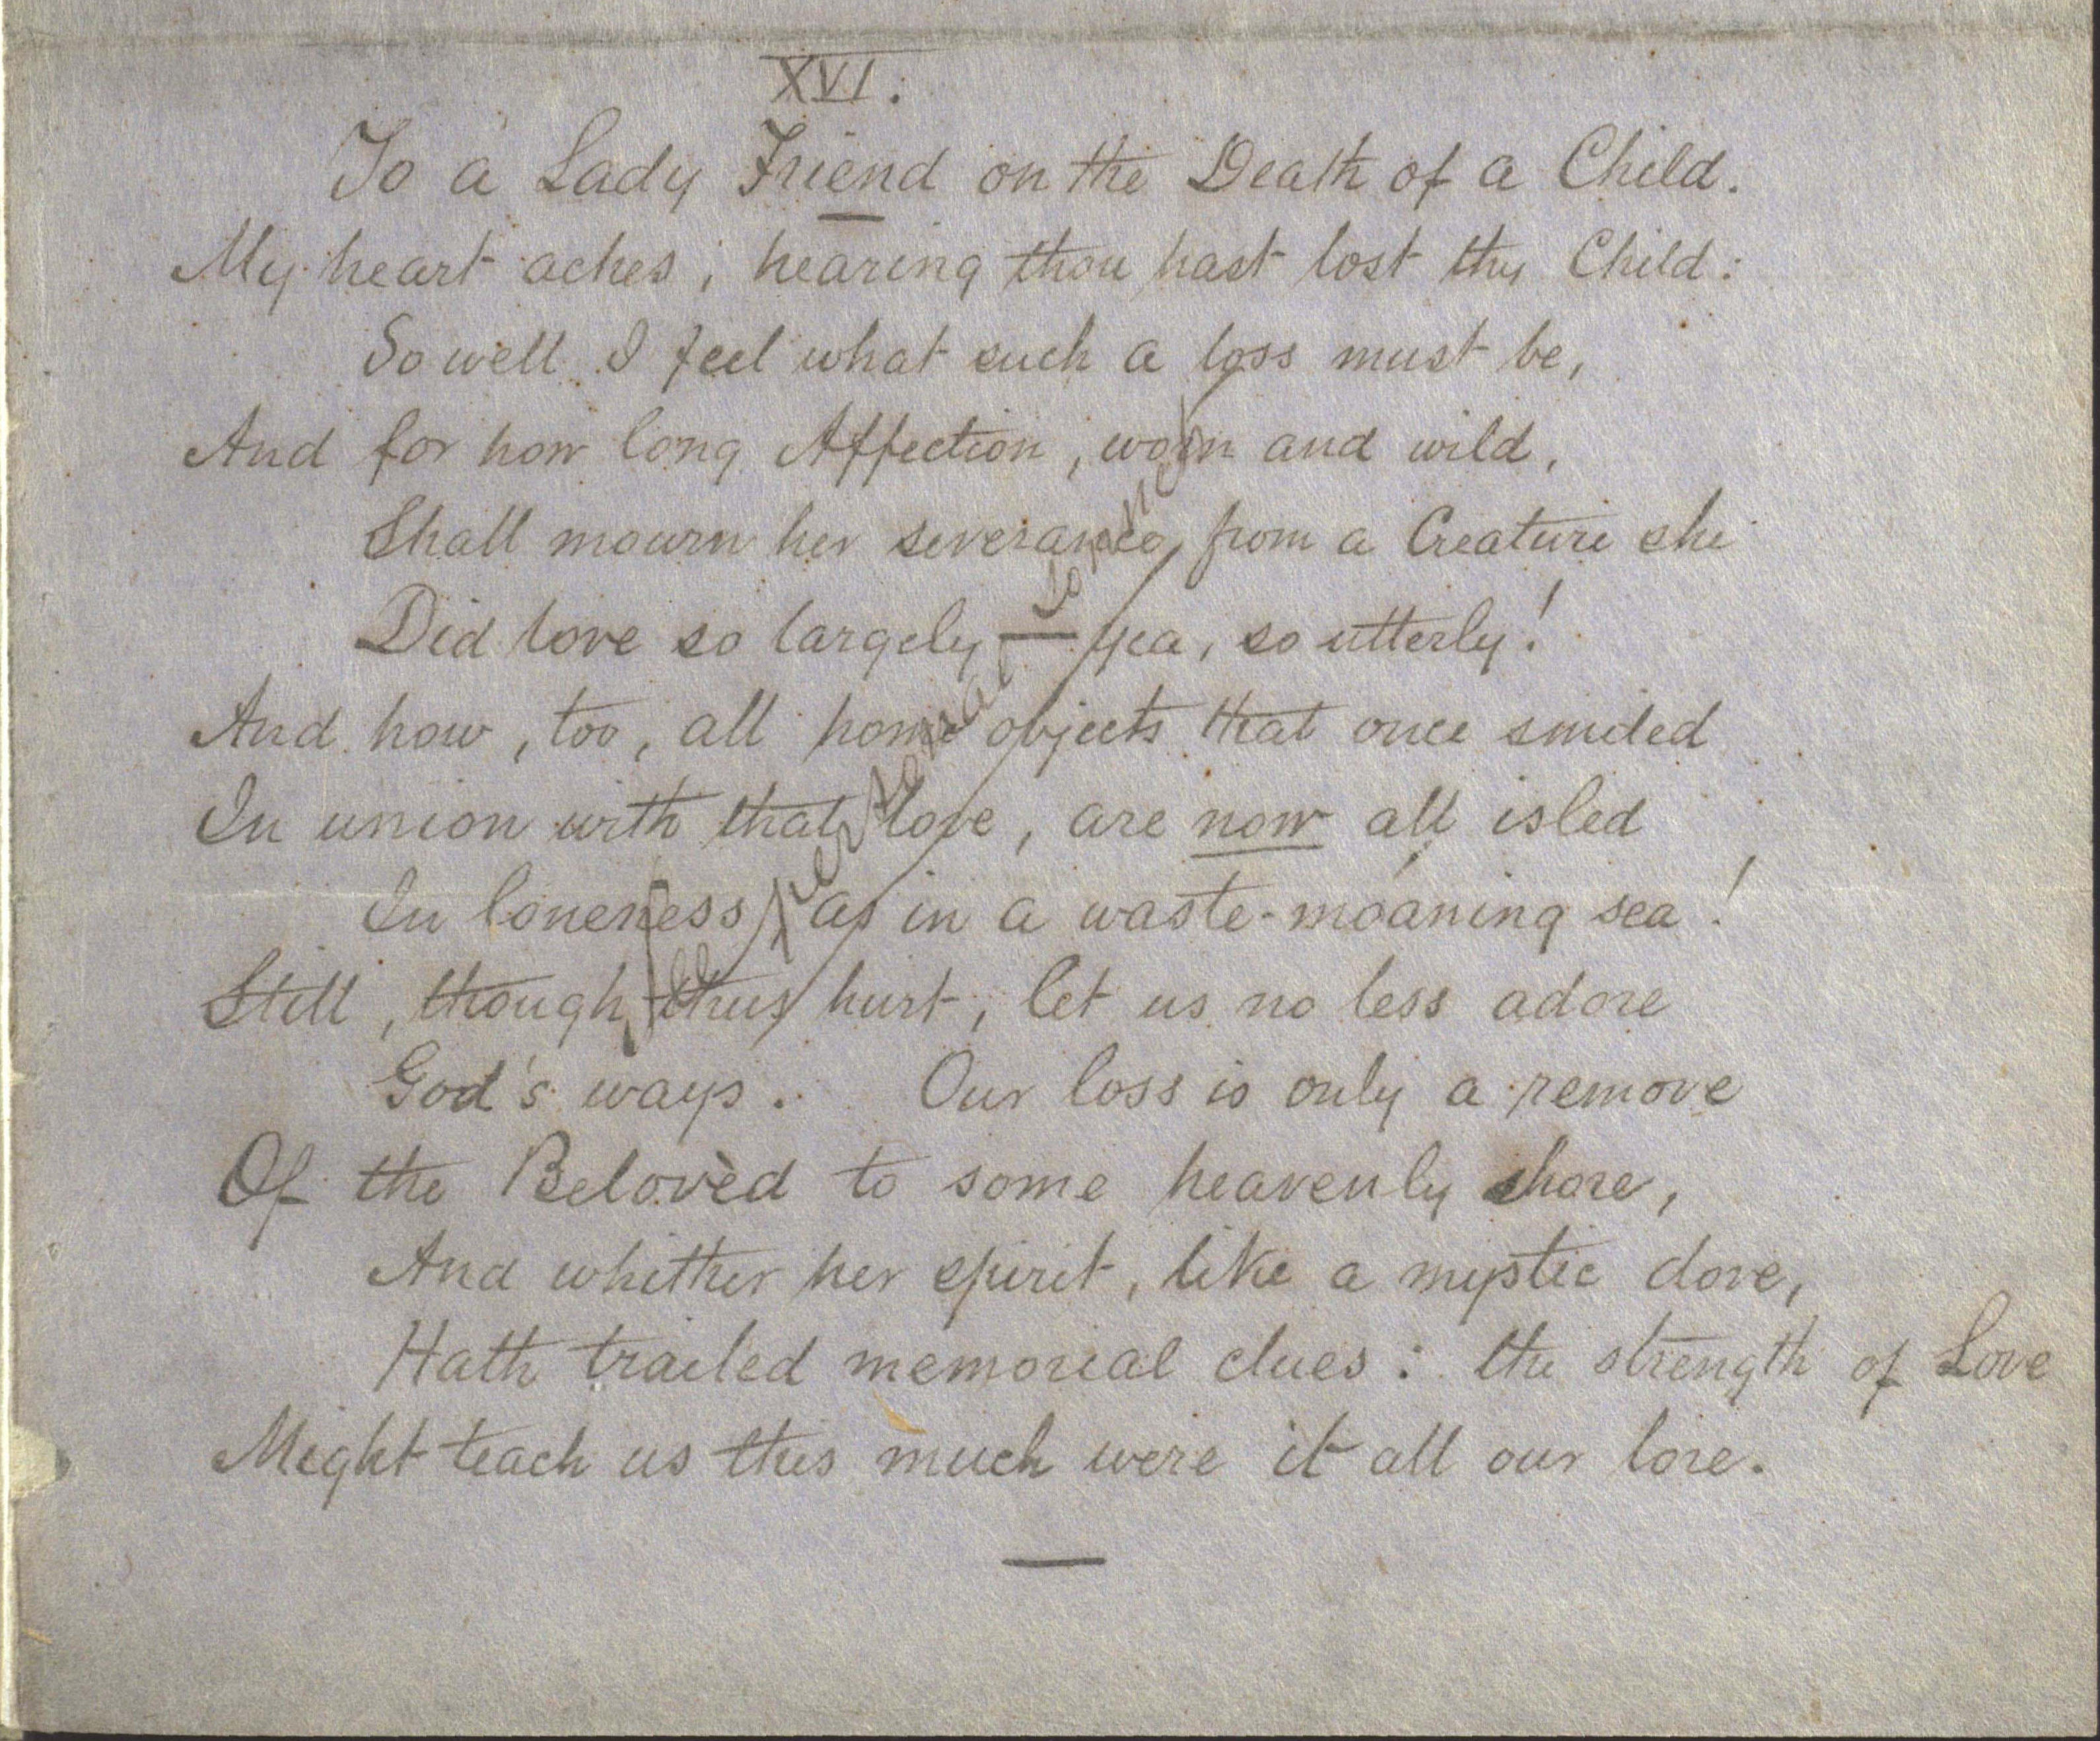 XVI.
To a Lady Friend on the Death of a Child.
My heart aches, hearing thou hast lost thy Child:
So well I feel what such a loss must be,
And for how long Affection, worn and wild,
Shall mourn her severance from a Creature she
Did love so largely — yea, so utterly!
And how, too, all home objects that once smiled
In union with that love, are now all isled
In loneness, as in a waste-moaning sea!
Still, though thus hurt, let us no less adore
God's ways. Our loss is only a remove
Of the Belovèd to some heavenly shore,
And whither her spirit, like a mystic dove,
Hath trailed memorial clues: the strength of Love
Might teach us this much were it all our lore.
personal sonnet